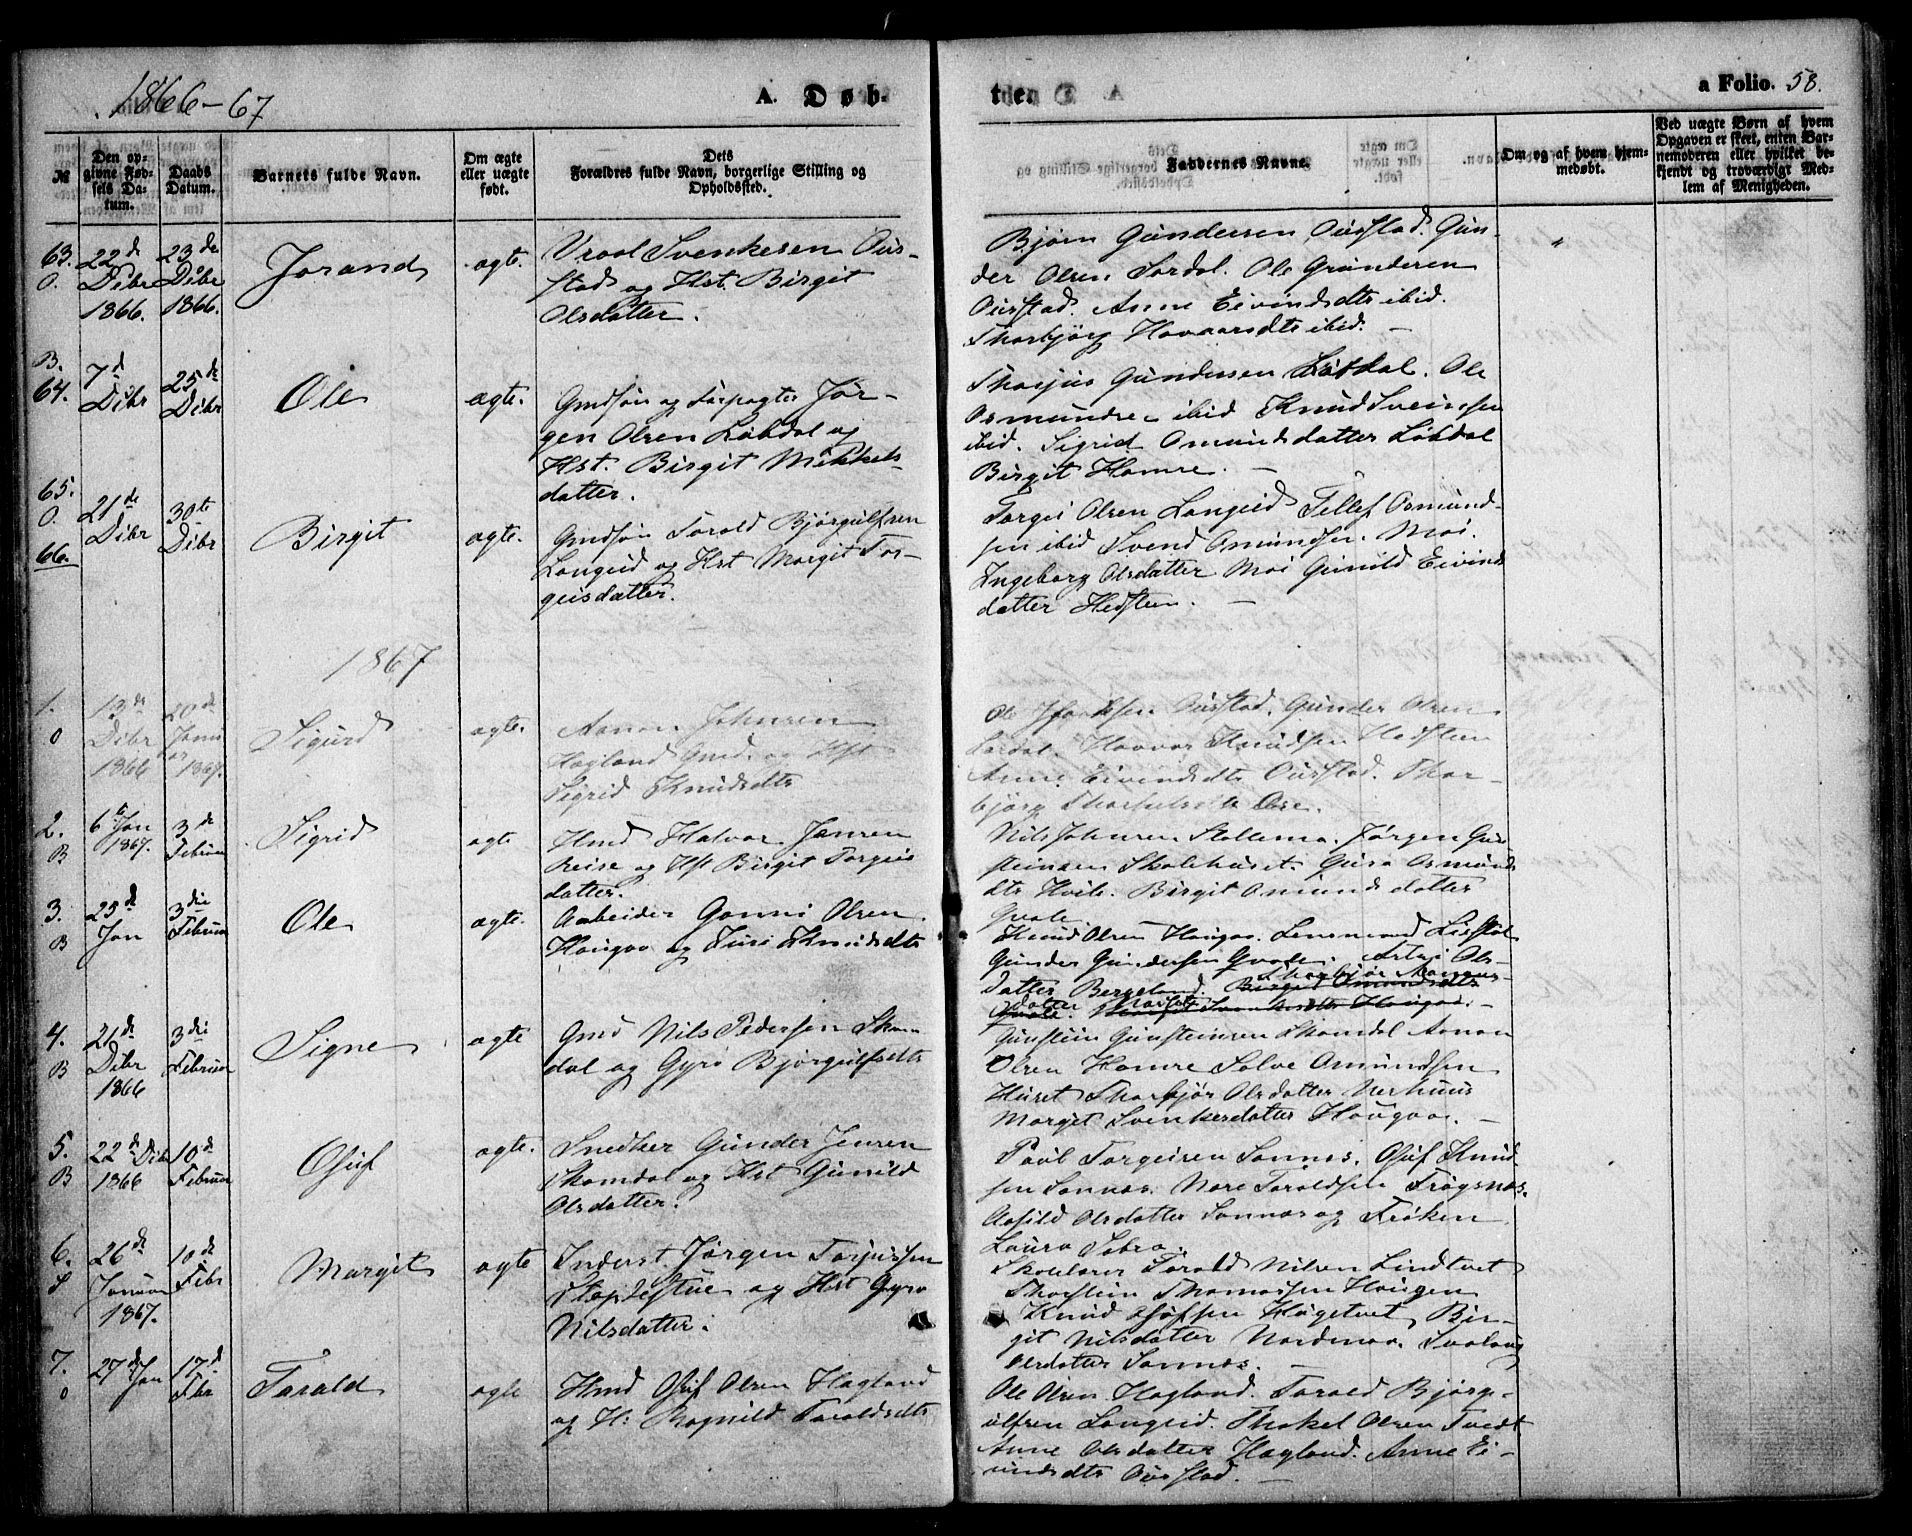 1866-67
A. Døb-
ten
a Folio. 58.
№
Den op-
givne Fød-
sels Da-
tum.
Daabs
Datum.
Barnets fulde Navn.
Om ægte
eller uægte
født.
Dets
Forældres fulde Navn, borgerlige Stilling og
Opholdssted.
Faddernes Navne.
Om og af hvem hjem-
medøbt.
Ved uægte Børn af hvem
Opgaven er skeet, enten Bar-
nemoderen eller hvilket be-
kjendt og troværdigt Med-
lem af Menigheden.
63.
O.
22de
Dcbr
1866.
23de
Dcbr
1866.
Jorand
ægte.
Vraal Svenkesen Øus-
stad og Hst. Birgit
Olsdatter.
Bjørn Gundersen Øusstad. Gun-
der Olsen Sordal. Ole Gundersen
Øusstad. Anne Eivindsdtr ibid.
Thorbjørg Hovaarsdtr ibid. -
B.
64.
7de
Dcbr
25de
Dcbr
Ole
ægte.
Gmdsøn og Forpagter Jør-
gen Olsen Løbdal og
Hst. Birgit Mikkels-
datter.
Thorjus Gundersen Løbdal. Ole
Osmundsen ibid Knud Sveinsen
ibid. Sigrid Omundsdatter Løbdal
Birgit Homre. -
65.
O.
66.
21de
Dcbr
30te
Dcbr
Birgit
ægte.
Gmdsøn Torald Bjørgulfsen
Longeid og Hst Margit Tor-
geisdatter.
Torgei Olsen Longeid Tellef Osmund-
sen ibid Svend Omundsen Moi.
Ingeborg Olsdatter Moi Gunild Eivinds
datter Hedsteen. -
1867
1.
O
13de
Dcbr
1866
20de
Janu
ar
1867.
Sigurd
ægte.
Aanon Johnsen
Hagland Gmd. og Hst
Sigrid Knudsdtr
Ole Øusstad. Gunder Olsen
Sordal. Hovor Knudsen Hedsteen
Anne Eivendsdtr Øusstad. Thor-
bjørg Thorkelsdtr Ose.
2.
B
6te Jan
1867.
3de
Februar
Sigrid
ægte
Hmd Halvor Jonsen
Beise og Hst Birgit Torgeis
datter.
Nils Johnsen Stallemo. Jørgen Gun-
steinsen Skolehuset. Guro Osmunds
dtr Hvile. Birgit Omundsdatter
Qvale.
3.
B
25de
Jan
3die
Februar
Ole
ægte.
Arbeider Gonni Olsen
Hougaa og Siri Knudsdtr
Knud Olsen Hougaa. Lensmand
Gunder Gundersen Qvale. Ols-
datter Bergeland. Birgit Omundsdtr
Qvale.
4.
B
21de
Dcbr
1866
3die
Februar
Signe
ægte
Gmd Nils Pedersen Skom-
dal og Gyro Bjørgulfsdtr
Gunstein Gunsteinsen Skomdal Aanon
Olsen Homre Salve Omundsen
Huset Thorbjør Olsdatter Nerhuus
Margit Svenkesdatter Hougaa. -
5.
B
22de Dcbr
1866
10de
Februar
Osuf
ægte.
Snedker Gunder Jensen
Skomdal og Hst Gunild
Olsdatter.
Poul Torgeisen Sonnes. Osuf Knud-
sen Sonnes. Nore Toraldsen Frøysnes.
Aasild Olsdatter Sonnes og Frøken
Laura Sobra.
6.
26de
Januar
1867.
10de
Febr
Margit
ægte
Inderst. Jørgen Torjussen
og Hst Gyro
Nilsdatter.
Skolelærer Torald Nilsen Lindtvet
Thorstein Thomassen Hougen
Knud Osufsen Hagetvet, Bir-
git Nilsdatter Nordenaa. Svalaug
Olsdatter Sonnes. -
7.
O
27de Jan
17de
Fbr
Torald
ægte
Hmd Osuf Olsen Hagland
og H: Ragnild Toraldsdtr
Ole Olsen Hagland. Torald Bjørg-
ulfsen Longeid. Thokel Olsen Tvedt
Anne Olsdatter Hagland. Anne Ei-
vindsdtr Øusstad. -